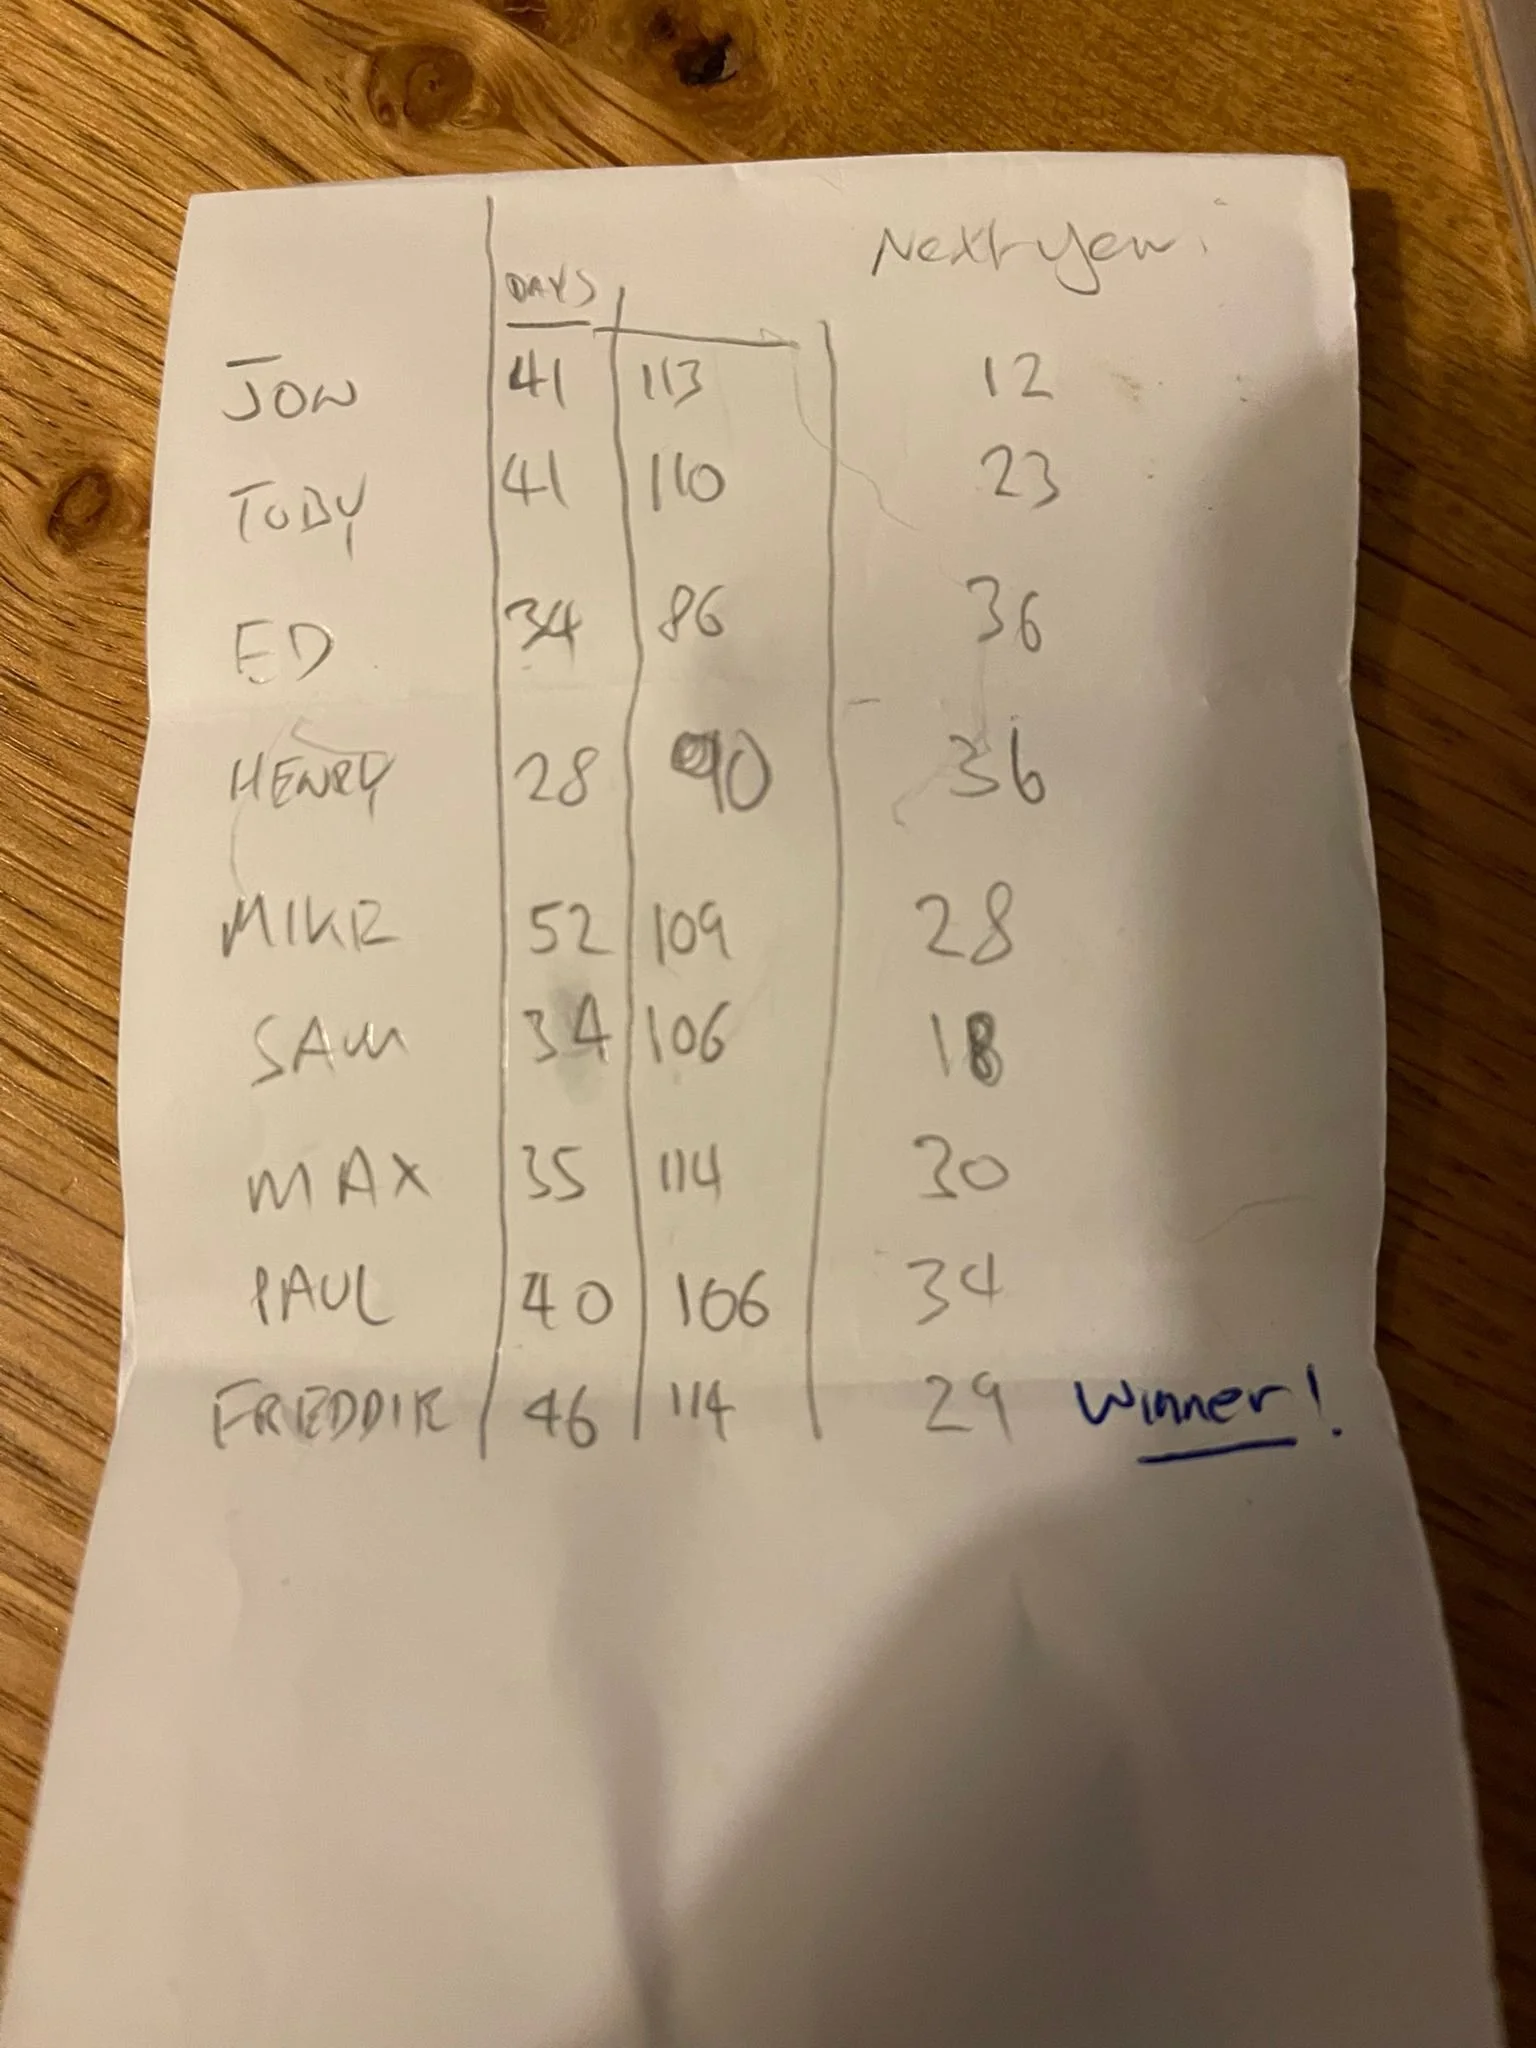 DAYS Next year.
JON 41 113 12
TOBY 41 110 23
ED 34 86 36
HENRY 28 90 36
MIKE 52 109 28
SAM 34 106 18
MAX 35 114 30
PAUL 40 106 34
FREDDIE 46 114 29 Winner!